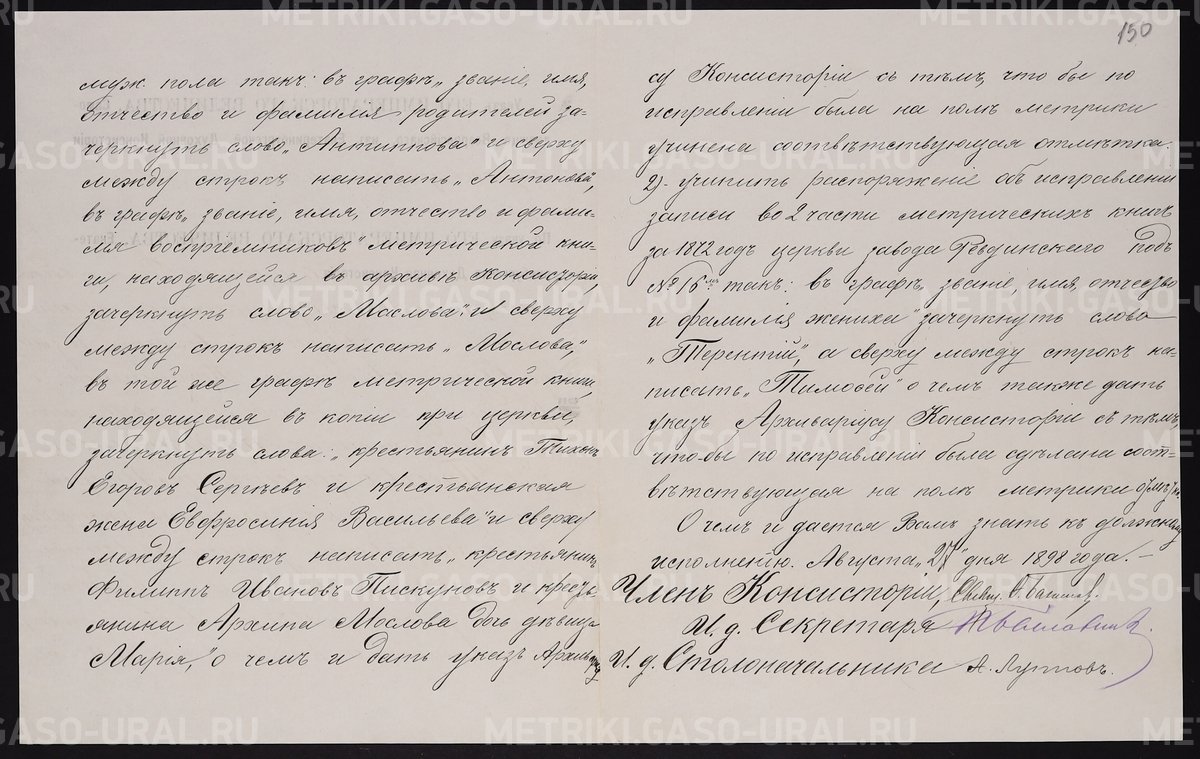 150
муж. пола такъ: въ графѣ „званіе, имя,
отчество и фамилія родителей за-
черкнуть слово „Антипова" и сверху
между строкъ написать „Антонова",
въ графѣ „званіе, имя, отчество и фами-
лія воспріемниковъ" метрической кни-
ги, находящейся въ архивѣ Консисторіи,
зачеркнуть слово „Маслова" и сверху
между строкъ написать „Мослова",
въ той же графѣ метрической книги,
находящейся въ копіи при церкви,
зачеркнуть слова: „крестьянинъ Тихонъ
Егоровъ Сергѣевъ и крестьянская
жена Евфросинія Васильева" и сверху
между строкъ написать „крестьянинъ
Филиппъ Ивановъ Пискуновъ и кресть-
янина Архипа Мослова дочь дѣвица
Марія," о чемъ и дать указъ Архиваріу-
су Консисторіи съ тѣмъ, что бы по
исправленіи была на полѣ метрики
учинена соотвѣтствующая отмѣтка.
2). учинить распоряженіе объ исправленіи
записи во 2 части метрическихъ книгъ
за 1872 годъ церкви завода Ревдинскаго подъ
№ 16 такъ: въ графѣ „званіе, имя, отчество
и фамилія жениха" зачеркнуть слово
„Терентій", а сверху между строкъ на-
писать „Тимоѳей" о чемъ также дать
указъ Архиваріусу Консисторіи съ тѣмъ,
что-бы по исправленіи была сдѣлана соот-
вѣтствующая на полѣ метрики отмѣтка.
О чемъ и дается Вамъ знать къ должному
исполненію. Августа „27" дня 1898 года. —
Членъ Консисторіи, Свящ.
И. д. Секретаря
И. д. Столоначальника А. Луппов.
METRIKI.GASO-URAL.RU